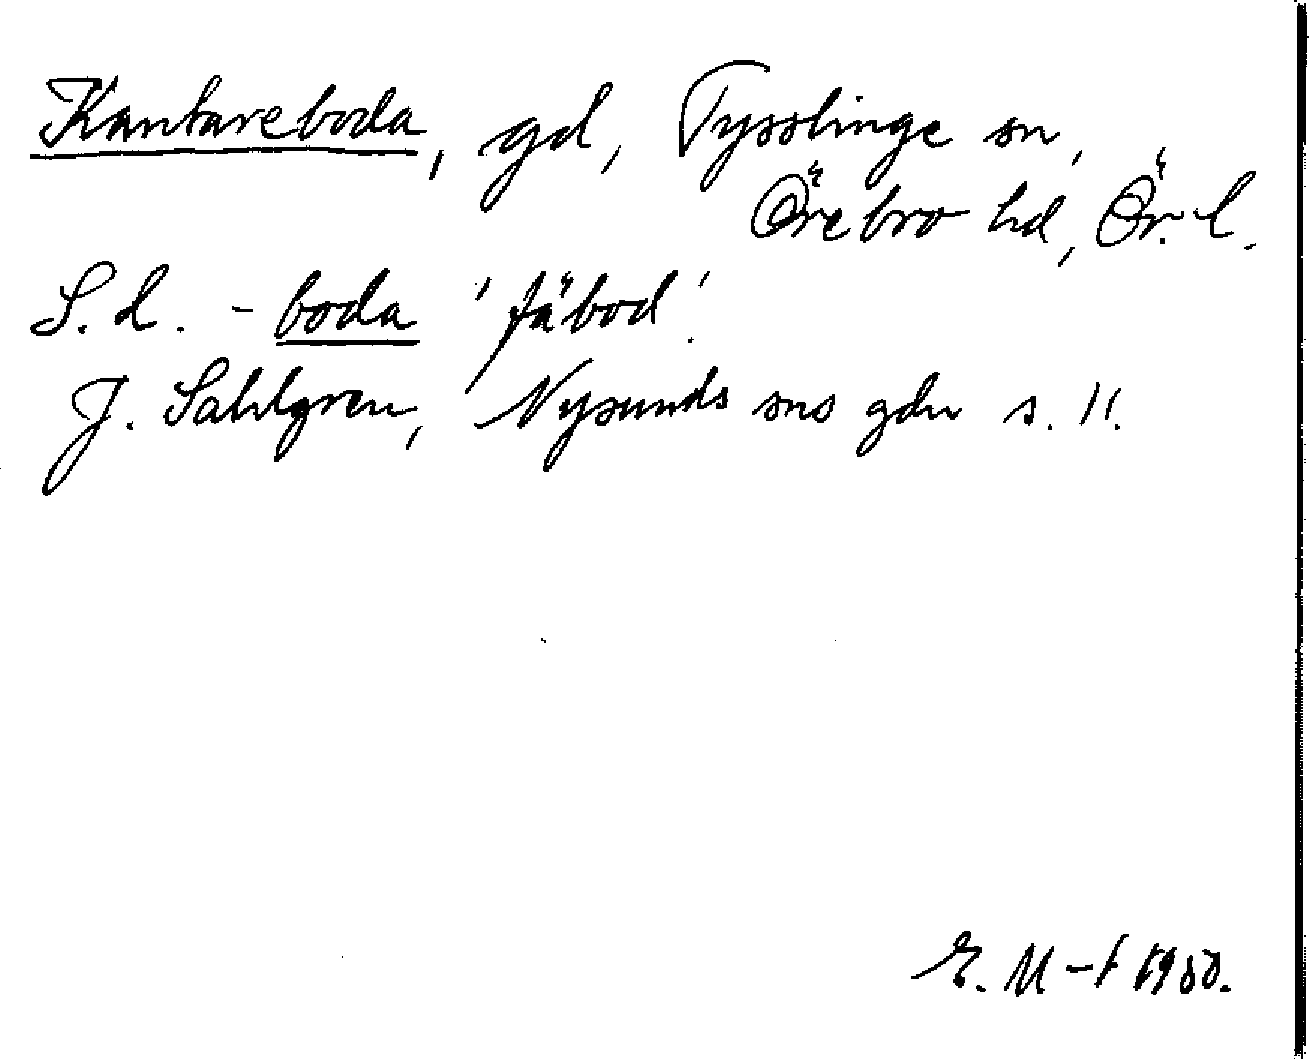 Kantareboda, gd, Tysslinge sn,
Örebro hd, Ör. l.
S. l. -boda 'fäbod'.
J. Sahlgren, Nysunds sns gdn s. 11.
E. M-t 1950.